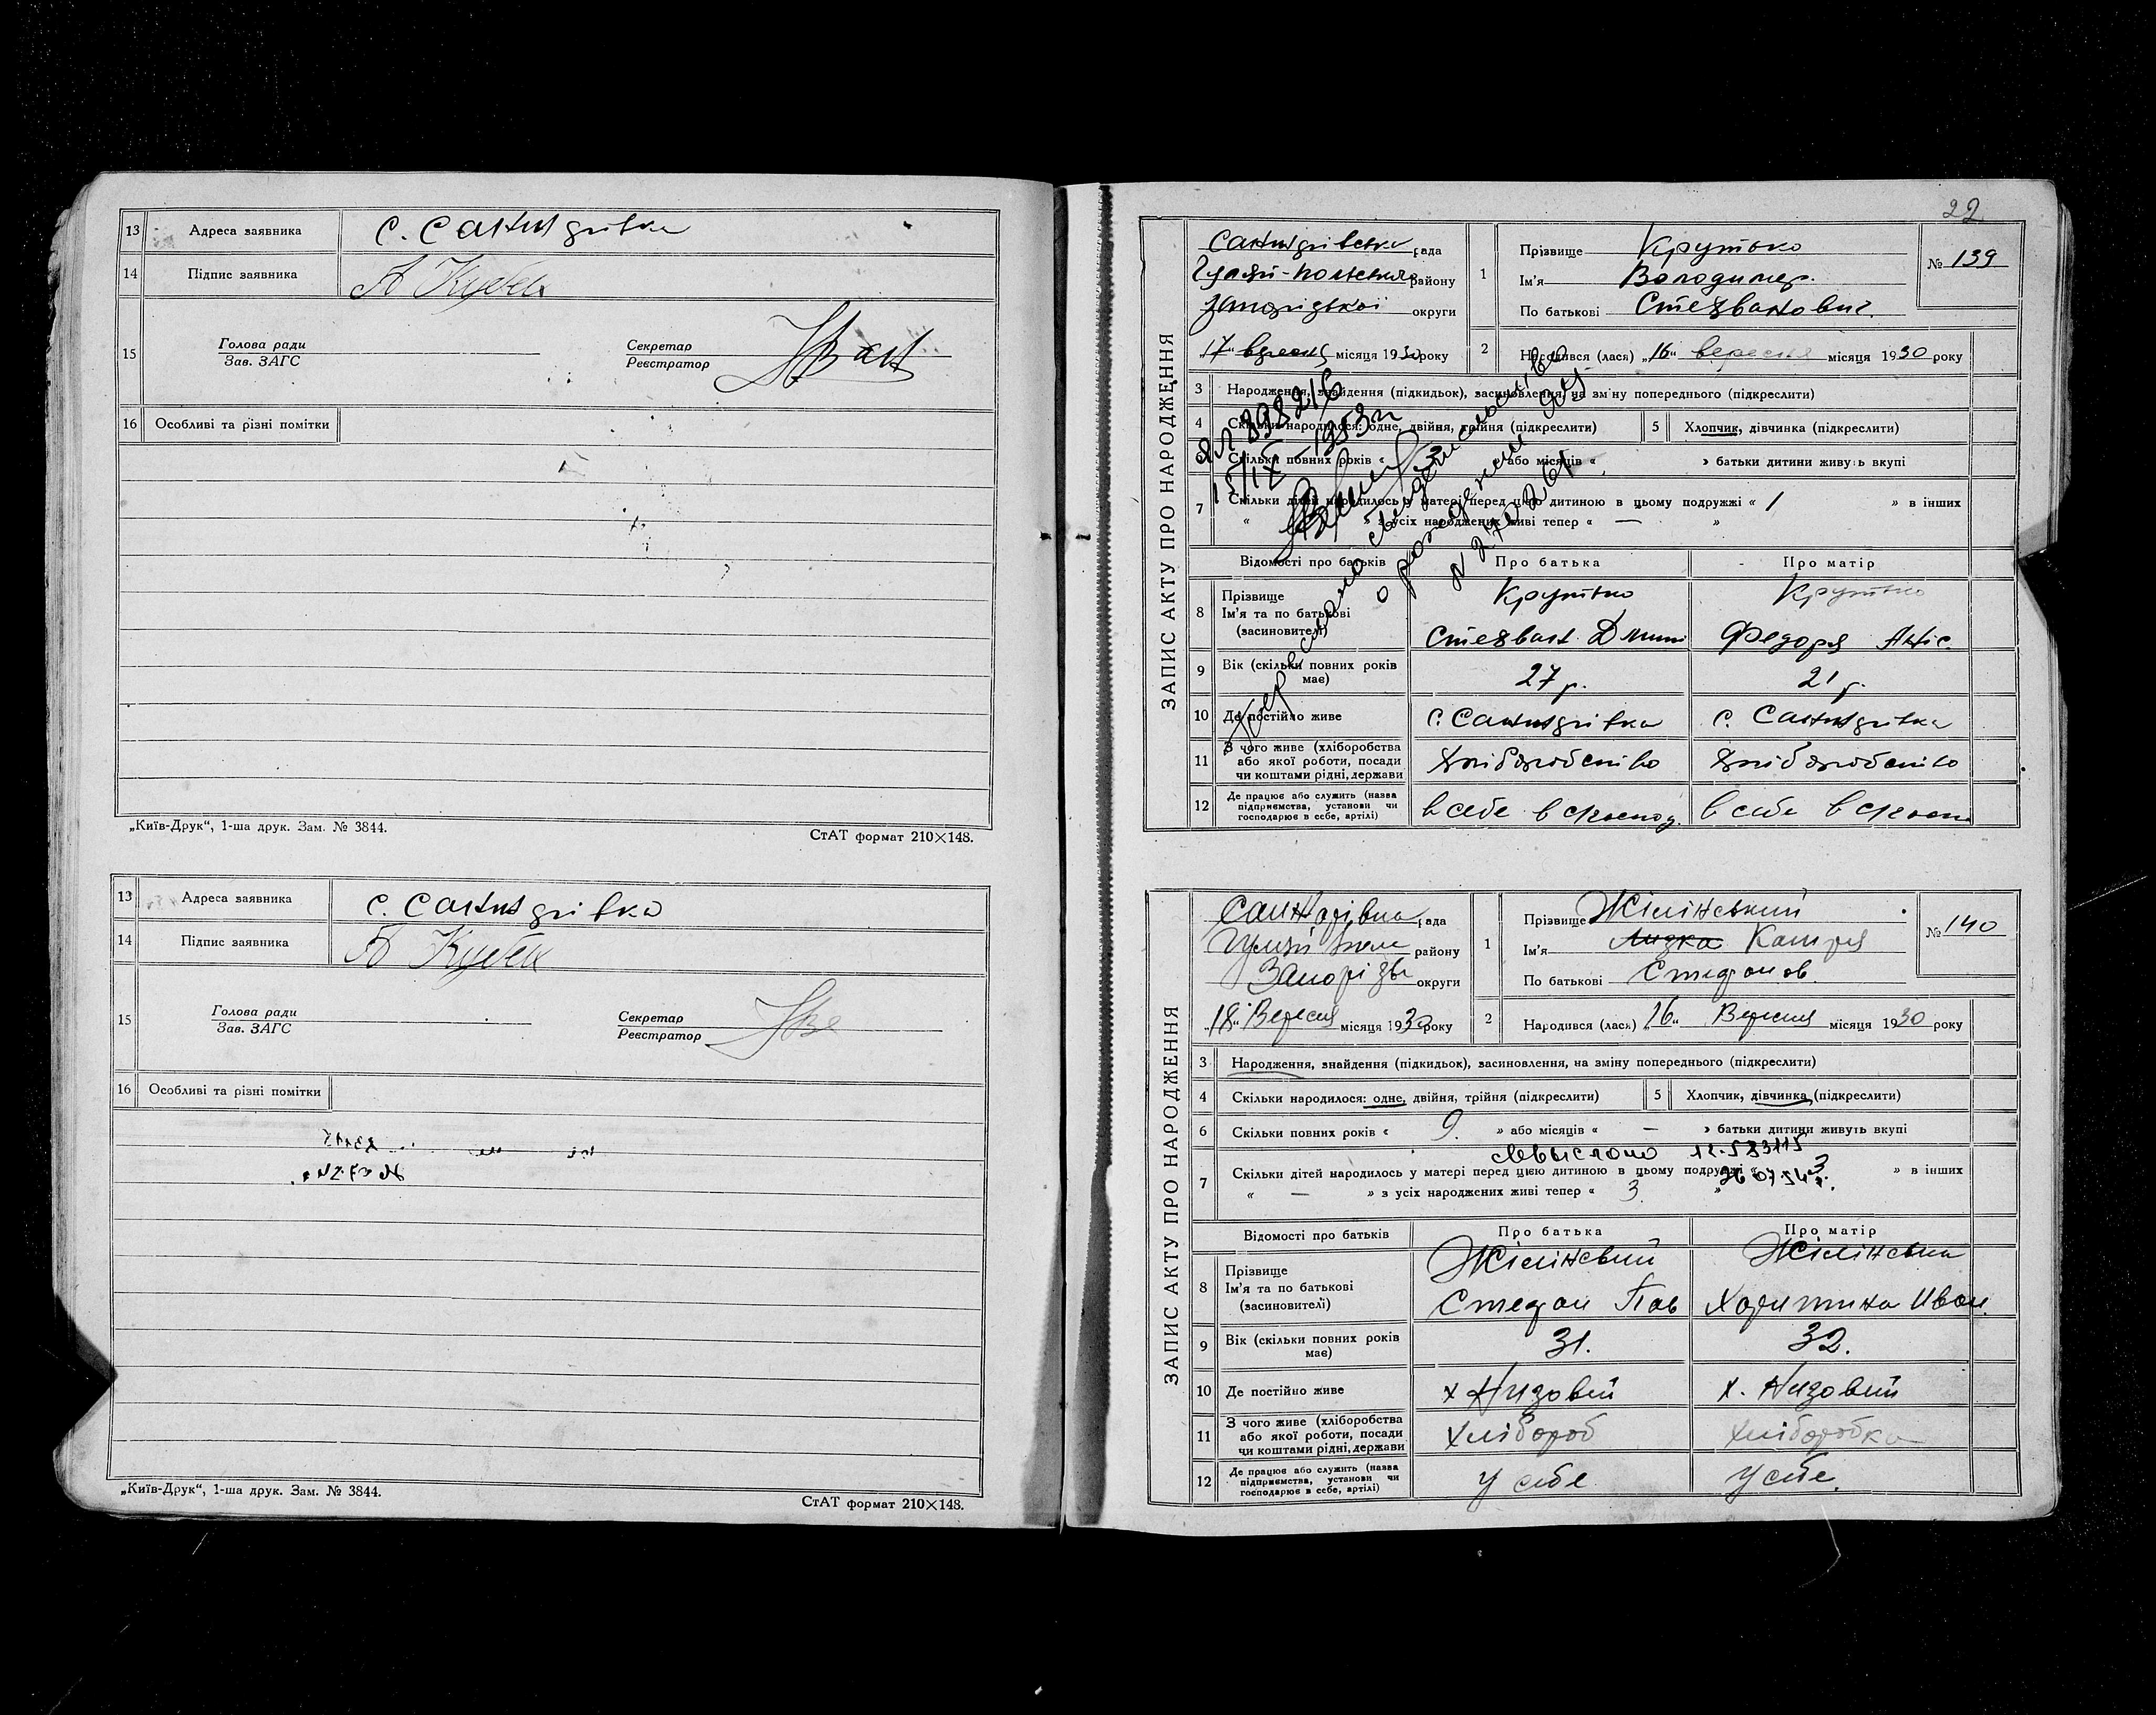 13 Адреса заявника с. Санжарівка
14 Підпис заявника
15 Голова ради
Зав. ЗАГС
Секретар
Реєстратор
16 Особливі та різні помітки
„Київ-Друк“, 1-ша друк. Зам. № 3844.
СтАТ формат 210×148.
13 Адреса заявника с. Санжарівка
14 Підпис заявника
15 Голова ради
Зав. ЗАГС
Секретар
Реєстратор
16 Особливі та різні помітки
„Київ-Друк“, 1-ша друк. Зам. № 3844.
СтАТ формат 210×148.
22
ЗАПИС АКТУ ПРО НАРОДЖЕННЯ
рада
району
округи
„17“ вересня місяця 1930 року
1 Прізвище Крутько
Ім'я Володимер.
По батькові Стехванович.
№ 139
2 Народився (лася) „16“ вересня місяця 1930 року
3 Народження, знайдення (підкидьок), засиновлення, на зміну попереднього (підкреслити)
4 Скільки народилося: одне, двійня, трійня (підкреслити)
5 Хлопчик, дівчинка (підкреслити)
6 Скільки повних років « 3 » або місяців « » батьки дитини живуть вкупі
7 Скільки дітей народилось у матері перед цією дитиною в цьому подружжі « 1 » в інших
« » з усіх народжених живі тепер « — »
Відомості про батьків Про батька Про матір
8 Прізвище Крутько Крутько
Ім'я та по батькові
(засиновителі) Стехван Дмит Федора Аніс.
9 Вік (скільки повних років має) 27 р. 21 р.
10 Де постійно живе с. Санжарівка с. Санжарівка
11 З чого живе (хліборобства
або якої роботи, посади
чи коштами рідні, держави хліборобство хліборобство
12 Де працює або служить (назва
підприємства, установи чи
господарює в себе, артілі) в себе в господ. в себе в господ
ЗАПИС АКТУ ПРО НАРОДЖЕННЯ
рада
району
округи
„18“ Вересня місяця 1930 року
1 Прізвище Жілінський
Ім'я Катря
По батькові Стефанов.
№ 140
2 Народився (лася) „16“ Вересня місяця 1930 року
3 Народження, знайдення (підкидьок), засиновлення, на зміну попереднього (підкреслити)
4 Скільки народилося: одне, двійня, трійня (підкреслити)
5 Хлопчик, дівчинка (підкреслити)
6 Скільки повних років « 9. » або місяців « — » батьки дитини живуть вкупі
7 Скільки дітей народилось у матері перед цією дитиною в цьому подружжі « 3. » в інших
« — » з усіх народжених живі тепер « 3. »
Відомості про батьків Про батька Про матір
8 Прізвище Жілінський Жілінська
Ім'я та по батькові
(засиновителі) Стефан Пав Харитина Иван.
9 Вік (скільки повних років має) 31. 32.
10 Де постійно живе х Низовий х. Низовий
11 З чого живе (хліборобства
або якої роботи, посади
чи коштами рідні, держави Хлібороб Хліборобка
12 Де працює або служить (назва
підприємства, установи чи
господарює в себе, артілі) У себе У себе.